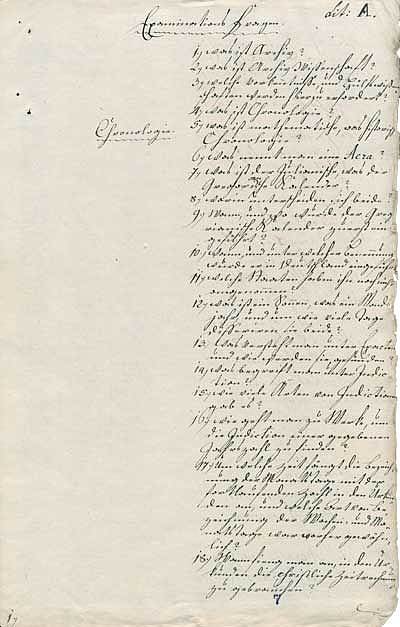 Lit: A.
Examinations Fragen.
1) Was ist Archiv?
2) Was ist Archiv Wissenschaft?
3) Welche Vorkentnisse, und Hilfswissen-
schaften werden hiezu erfordert?
4) Was ist Chronologie?
Chronologie.
5) Was ist mathematische, was historische
Chronologie?
6) Was nennt man eine Aera?
7) Was ist der Julianische, was der
Gregorianische Kalender?
8) Worin unterscheiden sich beide?
9) Wann, und wo wurde der Greg-
orianische Kalender zuerst ein-
geführt?
10) Wann, und unter welcher Benennung
wurde er in Deutschland eingeführt?
11) Welche Staaten haben ihn noch nicht
angenommen?
12) Was ist ein Sonnen, was ein Mond-
jahr, und um wie viele Tage
differiren sie beide?
13) Was versteht man unter Epacten
und wie werden sie gefunden?
14) Was begreift man unter Indic-
tion?
15) Wie viele Arten von Indictionen
gab es?
16) Wie geht man zu Werke, um
die Indiktion einer gegebenen
Jahrszahl zu finden?
17) Um welche Zeit fängt die Bezeich-
nung der Monatstage mit der
fortlaufenden Zahl in den Urkun-
den an, und welche Art von Be-
zeichnung der Wochen- und Mo-
natstage war vorher gewöhn-
lich?
18) Wann fieng man an, in den Ur-
kunden die christliche Zeitrechnung
zu gebrauchen?
7